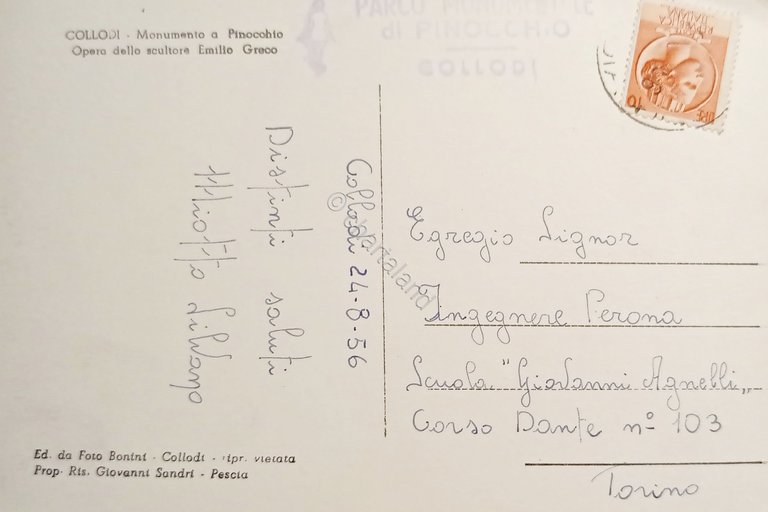 COLLODI - Monumento a Pinocchio
Opera dello scultore Emilio Greco
PARCO MONUMENTALE
di PINOCCHIO
COLLODI
LIRE 10
Collodi 24-8-56
Distinti saluti
Silvano
© Cartaland
Egregio Signor
Ingegnere Perona
Scuola "Giovanni Agnelli"
Corso Dante nº 103
Torino
Ed. da Foto Bonini - Collodi - ripr. vietata
Prop. Ris. Giovanni Sandri - Pescia